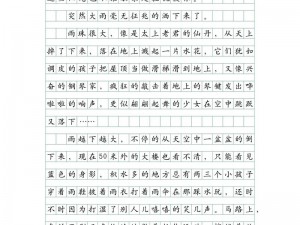 突然大雨毫无征兆的洒下来了。
雨珠很大，像是太上老君的仙丹，从天上
摔了下来，落在地上溅起一片水花，它们犹如
调皮的孩子把屋顶当做滑梯滑到地上，又像兴
奋的钢琴家，疯狂地敲打着地上的钢琴键发出哗
啦啦的响声，更似翩翩起舞的少女在空中跳跃
又落下……
雨越下越大，不停的从天空中一盆盆的倒
下来，现在50米外的大楼也看不清，只能看见
蓝色的身影。积水多的地方总有两三个小孩子
穿着雨鞋披着雨衣打着雨伞在那踩水玩，还时
不时因为打湿了别人儿嘻嘻的笑几声。马路上，